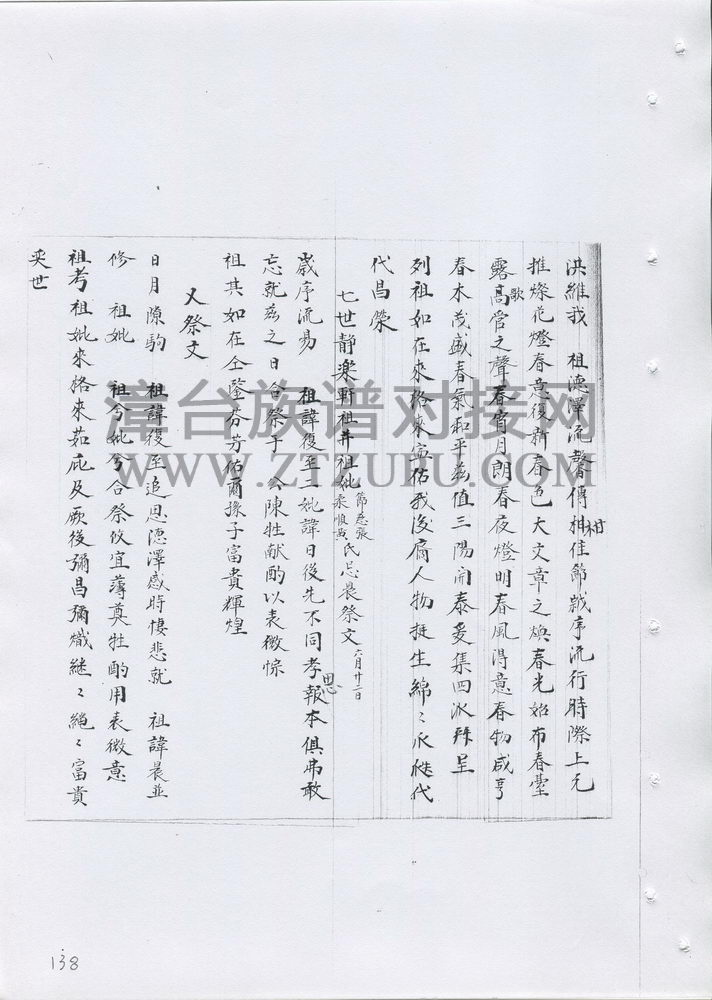 洪維我　祖德澤流馨傳柑佳節歲序流行時際上元
推燦花燈春意復新春色大文章之煥春光始布春臺
露歌高管之聲春宵月朗春夜燈明春風得意春物咸亨
春木茂盛春氣和平茲值三陽開泰爰集四派拜呈
列祖如在來格來享佑我後裔人物挺生綿〻瓜瓞代
代昌榮
七世靜樂軒祖并祖妣節慈張柔順黃氏忌晨祭文六月廿二日
歲序流易　祖諱復至二妣諱日後先不同孝思報本俱弗敢
忘就茲之日合祭于　公陳牲献酌以表微悰
祖其如在仝登芬芳佑爾孫子富貴輝煌
又祭文
日月隙駒　祖諱復至追思德澤感時悽悲就　祖諱晨並
修　祖妣　祖兮妣兮合祭攸宜薄奠牲酌用表微意
祖考祖妣來格來茹庇及厥後彌昌彌熾継〻繩〻富貴
奕世
漳台族谱对接网
WWW.ZTZUPU.COM
138